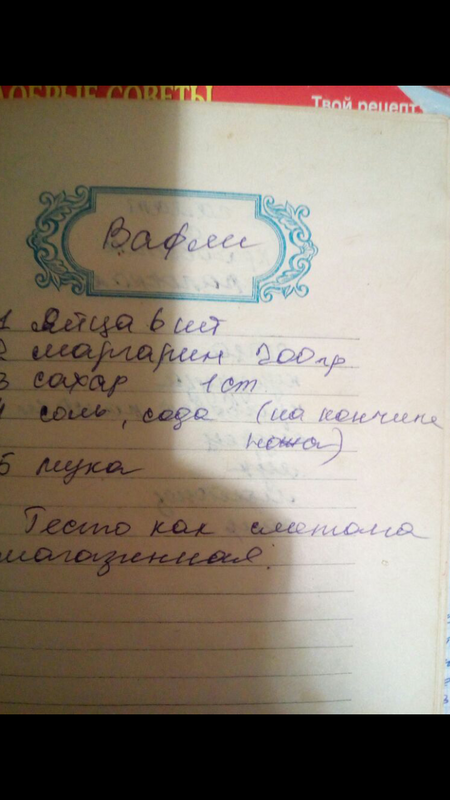 ДОБРЫЕ СОВЕТЫ
Твой рецепт
Вафли
1 Яйца 6 шт
2 маргарин 200 гр
3 сахар 1 ст
4 соль, сода (на кончике
ножа)
5 мука
Тесто как сметана
магазинная.